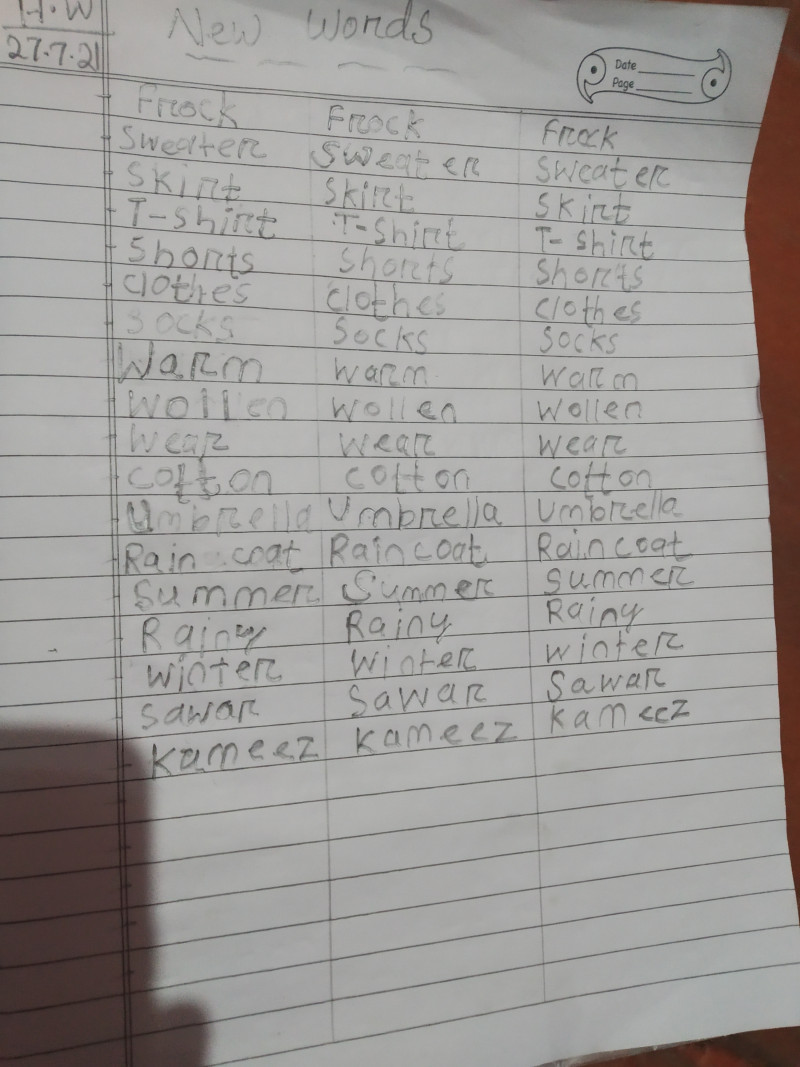 H.W
27.7.21
New Words
Date
Page
Frock Frock Frock
Sweater Sweater Sweater
Skirt Skirt Skirt
T-Shirt T-Shirt T-Shirt
Shorts Shorts Shorts
Clothes Clothes Clothes
Socks Socks Socks
Warm Warm Warm
Wollen Wollen Wollen
Wear Wear Wear
Cotton Cotton Cotton
Umbrella Umbrella Umbrella
Rain coat Raincoat Raincoat
Summer Summer Summer
Rainy Rainy Rainy
Winter Winter Winter
Sawar Sawar Sawar
Kameez Kameez Kameez